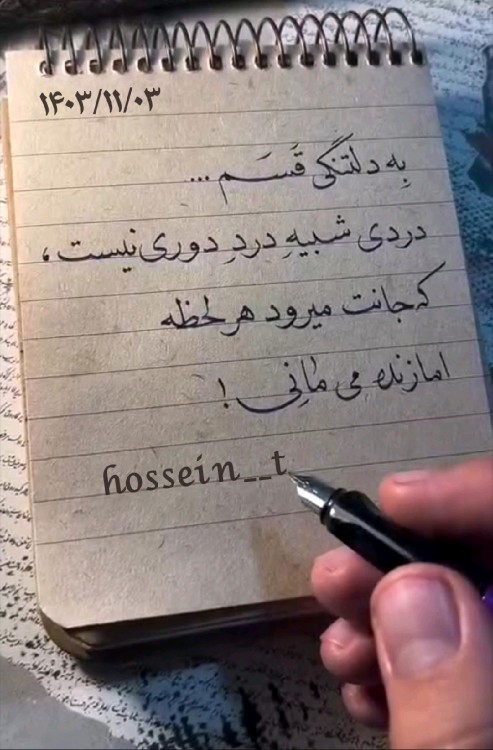 ۱۴۰۳/۱۱/۰۳
بِه دلتنگی قَسَم ...
دردی شبیهِ دردِ دوری نیست ،
که جانت میرود هر لحظه
اما زنده می مانی !
hossein__t